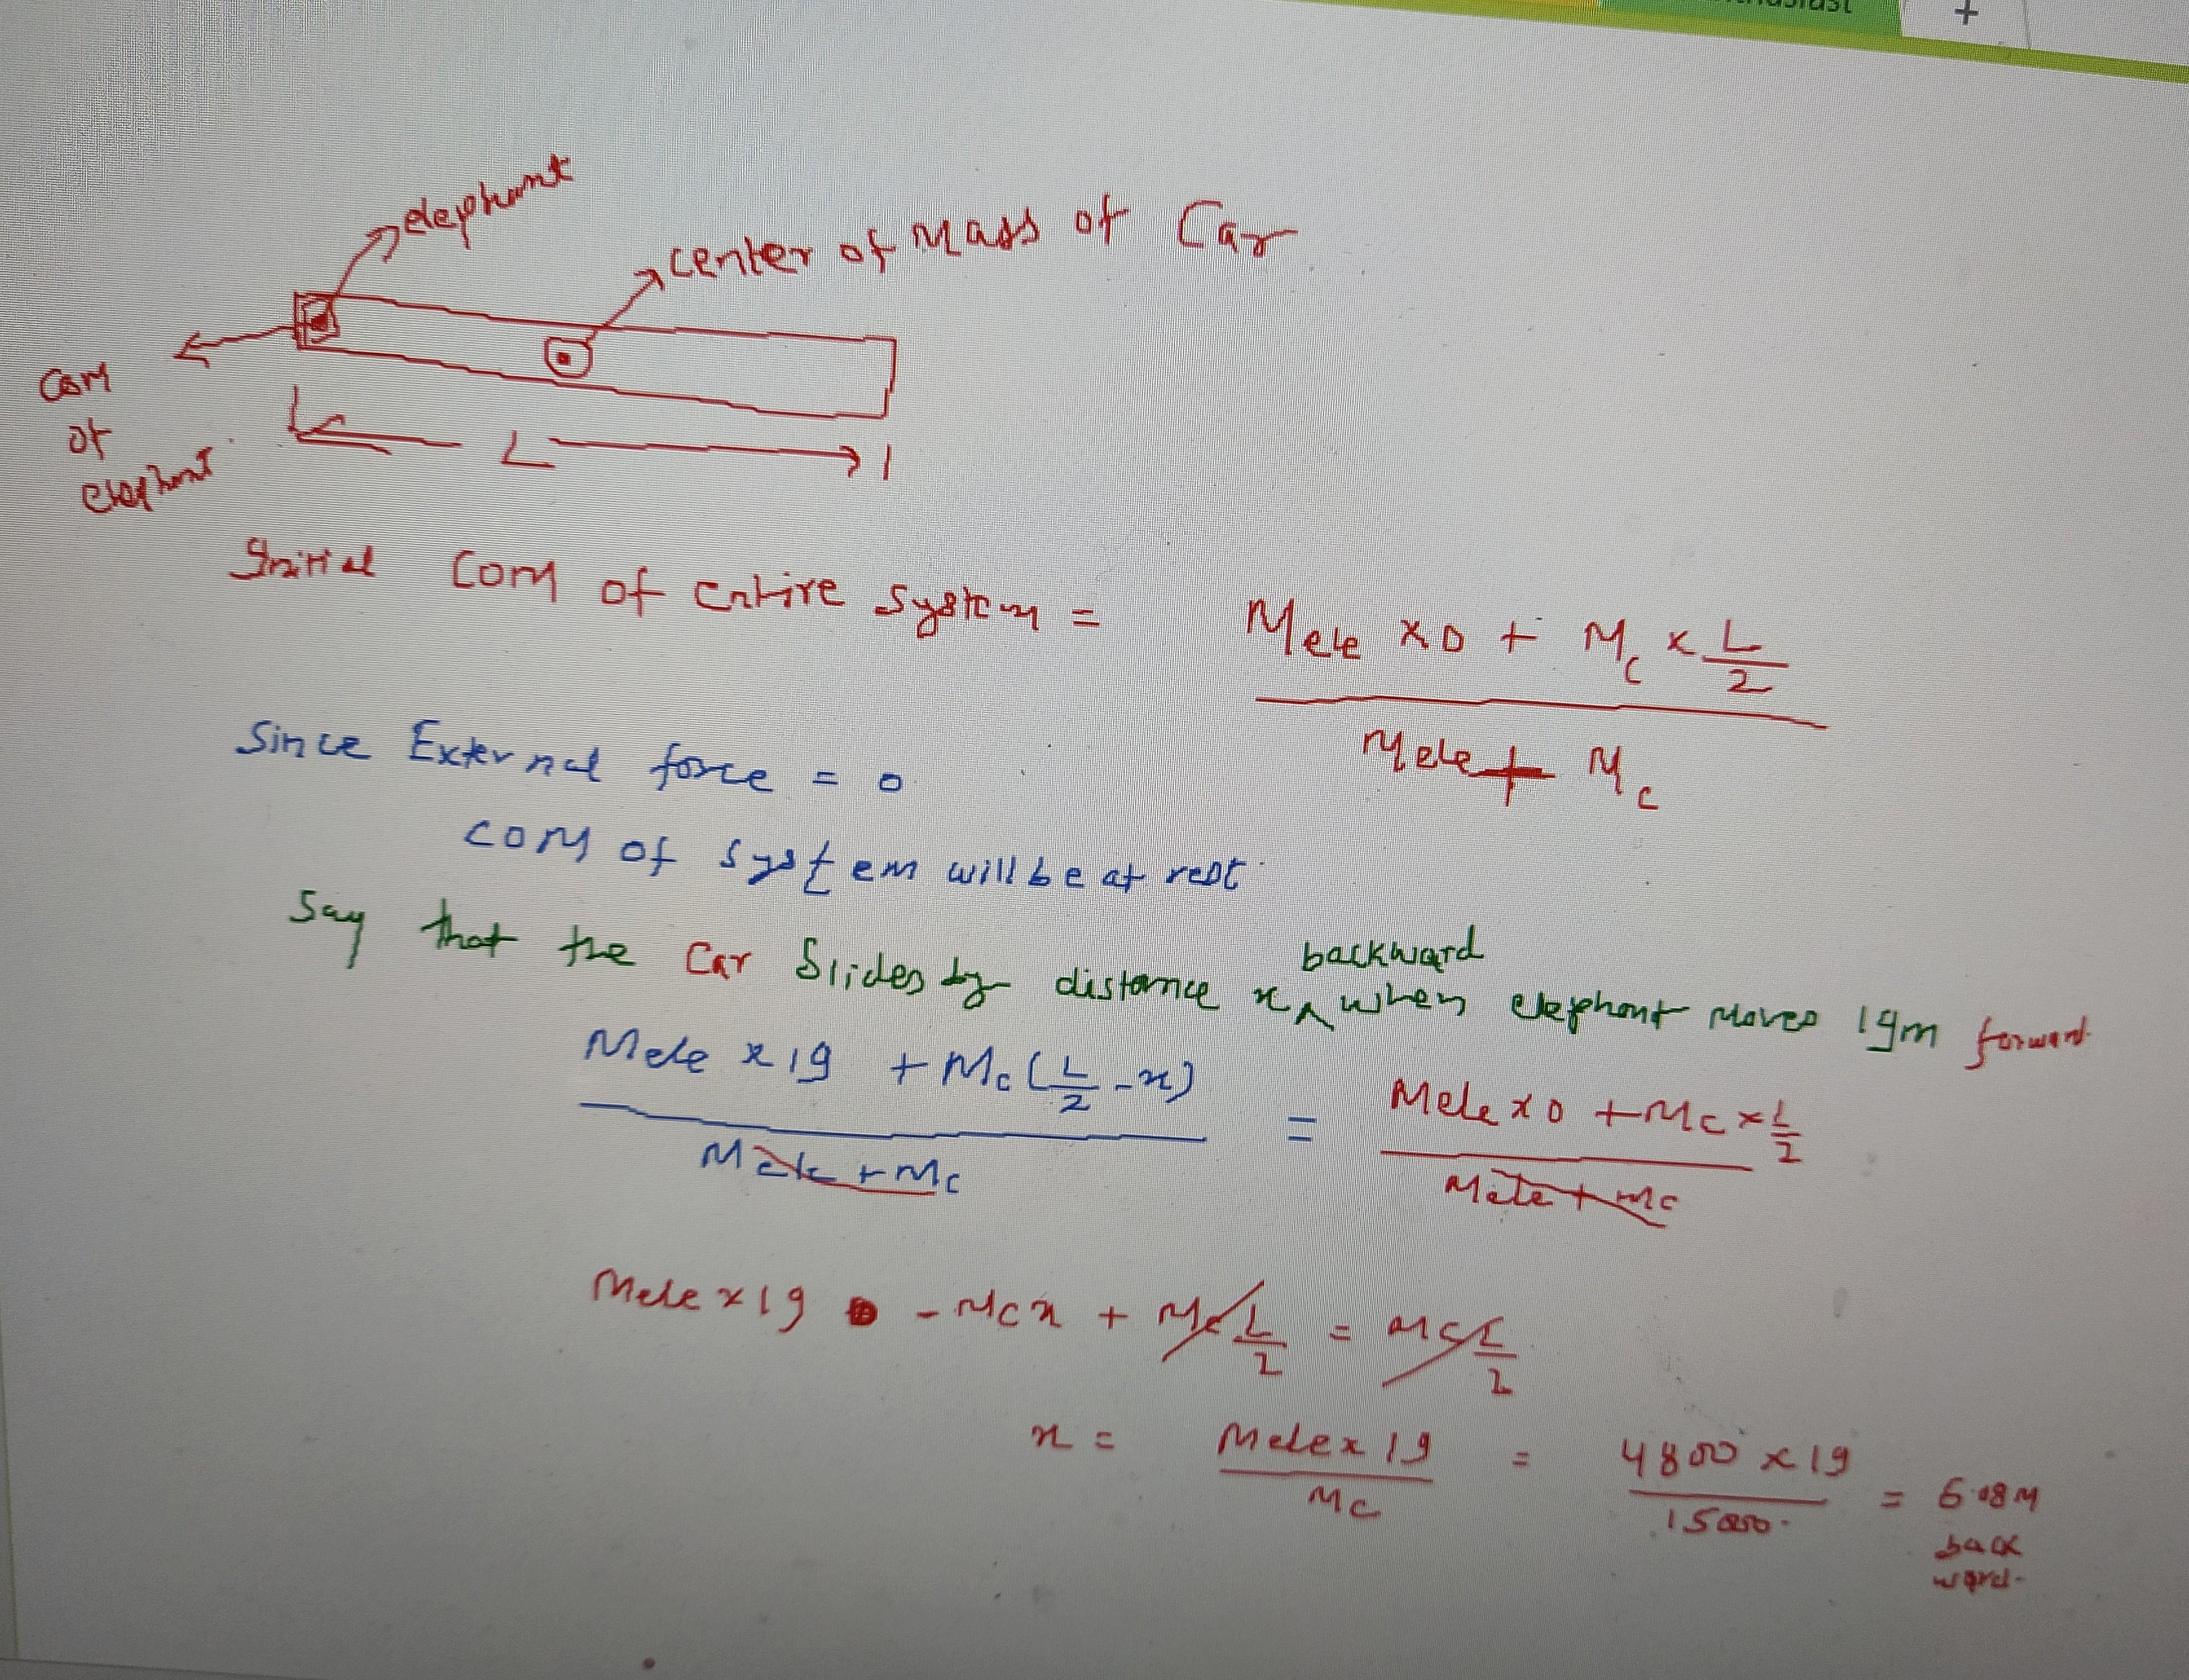 +
elephant
center of Mass of Car
COM
of
elephant
L
Initial COM of Entire System = (Mele x 0 + Mc x L/2) / (Mele + Mc)
Since External force = 0
COM of system will be at rest
Say that the Car Slides by distance x backward when elephant moves 19m forward.
(Mele x 19 + Mc (L/2 - x)) / (Mele + Mc) = (Mele x 0 + Mc x L/2) / (Mele + Mc)
Mele x 19 - Mc x + Mc L/2 = Mc L/2
x = (Mele x 19) / Mc = (4800 x 19) / 15000 = 6.08M
back
ward.